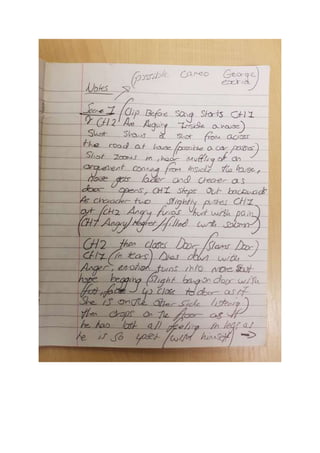 (possible Cameo George
Notes
Scene 1 (Clip Before Song Starts CH1
& CH2 Are Arguing Inside a house)
Shot Shows is shot from across
the road at house (possible a car passes)
Shot Zooms in, hear muffling of an
arguement coming from inside the house,
gets louder and clearer as
door opens, CH1 steps out backwards
As character two slightly pushes CH1
out (CH2 Angry turns hurt with pain)
(CH1 Angry filled with
CH2 then closes Door (Slams Door)
CH1 (in tears) Dies down with
Anger, emotion turns into more
begging (slight bang on door with
fist, up close to door as if
She is on the other side listening)
then drops on the floor as if
he has lost all feeling in legs as
he is so upset (with himself) →